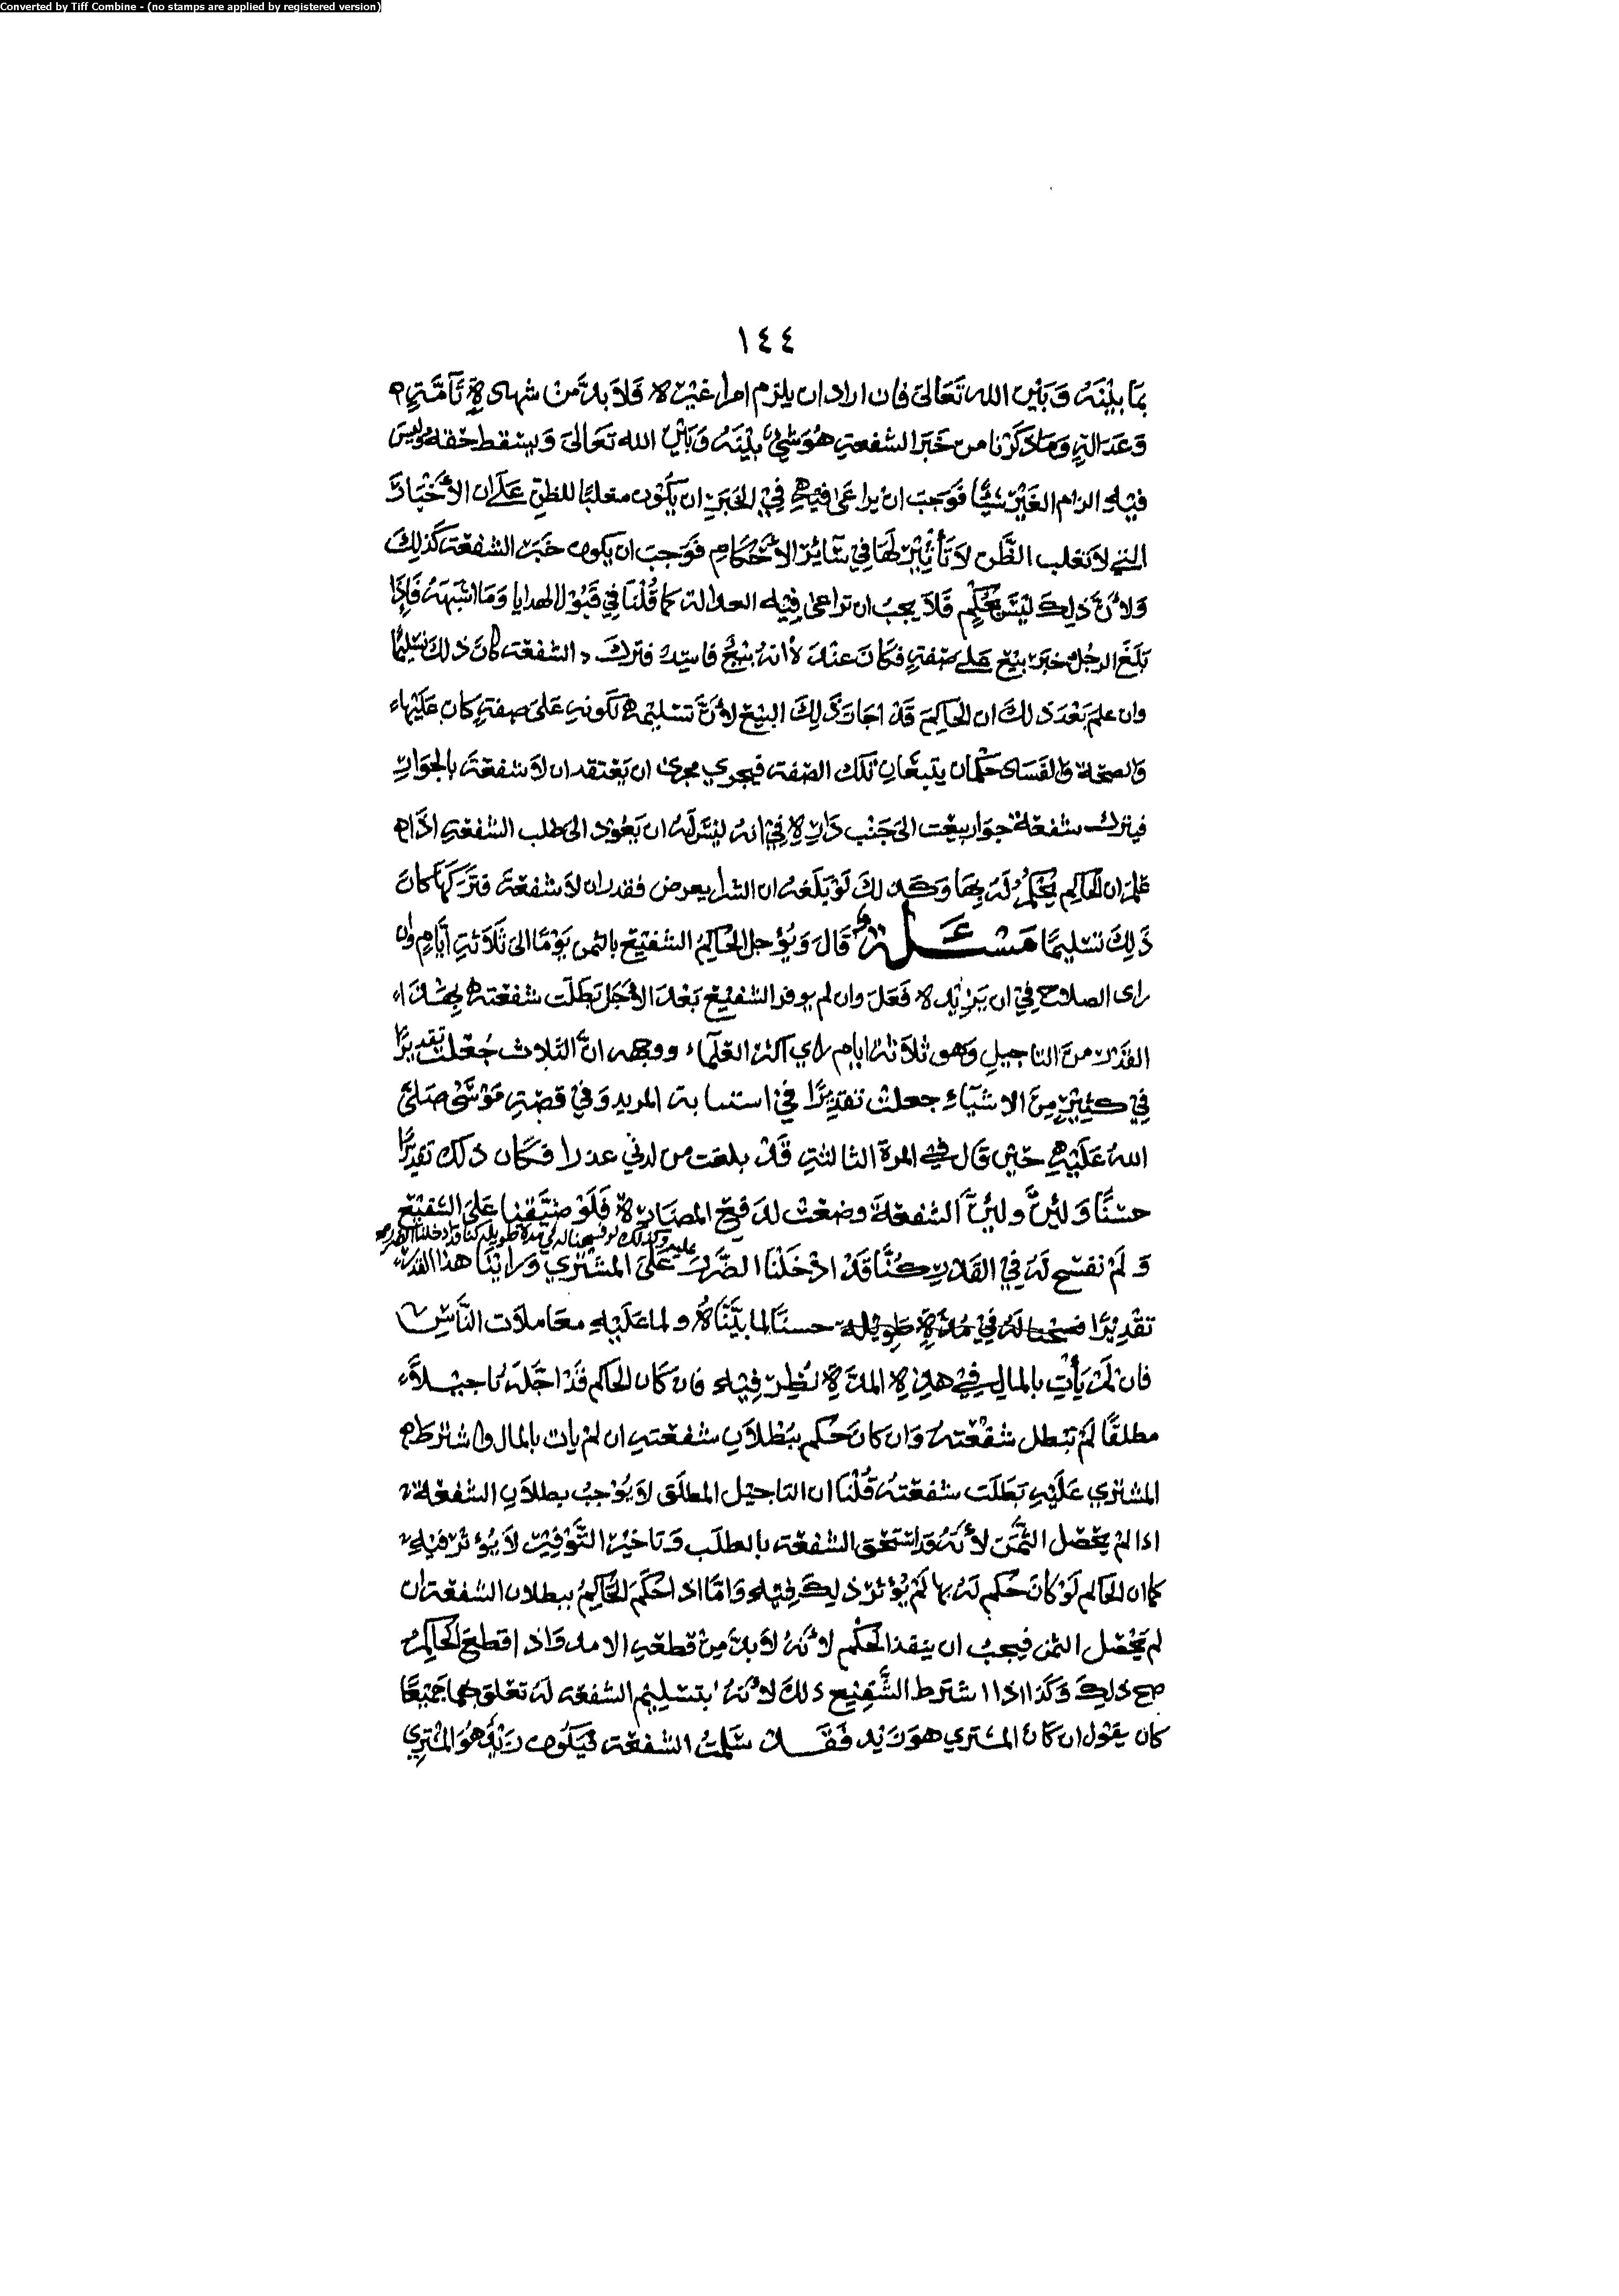 Converted by Tiff Combine - (no stamps are applied by registered version)
١٤٤
بما بينه وبين الله تعالى فان اراد ان يلزم امرا غيره فلا بد من شهادة تآمة
وعدالة وما ذكرنا من خبر الشفعة هو شيء بينه وبين الله تعالى ويسقط حقه وليس
فيه الزام الغير شيئا فوجب ان يراعى فيه في الخبر ان يكون مغلبا للظن على ان الأخبار
التي لا تغلب الظن لا تأثير لها في سآئر الأحكام فوجب ان يكون خبر الشفعة كذلك
ولأن ذلك ليس بحكم فلا يجب ان تراعى فيه العدالة كما قلنا في قبول الهدايا وما اشبهه فإذا
بلغ الرجل خبر بيع على صفة فكان عنده لأنه بيع فاسد فترك الشفعة كان ذلك تسليما
وان علم بعد ذلك ان الحاكم قد اجاز ذلك البيع لأن تسليمه لكونه على صفة كان عليها
والصحة والفساد حكمان يتبعان تلك الصفة فيجري مجرى ان يعتقد ان لا شفعة بالجوار
فيترك شفعة جوار بيعت الى جنب داره في انه ليس له ان يعود الى طلب الشفعة اذا
علم ان الحاكم يحكم له بها وكذلك لو بلغه ان الشراء بعرض فقدر ان لا شفعة فتركها كان
ذلك تسليما مسئلة قال ويؤجل الحاكم الشفيع بالثمن يوما الى ثلاثة أيام وان
راى الصلاح في ان يزيده فعل وان لم يوفر الشفيع بعد الأجل بطلت شفعته بهذا
القدر من التاجيل وهو ثلاثة ايام راي اكثر العلمآء ووجهه ان الثلاث جعلت تقديرا
في كثير من الاشيآء جعلت تقديرا في استتابة المرتد وفي قصة موسى صلى
الله عليه حين قال في المرة الثالثة قد بلغت من لدني عذرا فكان ذلك تقديرا
حسنا ولئن ولئن الشفعة وضعت لدفع المضارة فلو ضيقنا على الشفيع
عليه وكذلك لو فسحنا له في مدة طويلة كنا قد ادخلنا الضرر
ولم نفسح له في القدر كنا قد ادخلنا الضرر على المشتري وراينا هذا القدر
تقديرا فسحنا له في مدة طويلة حسنا لما بيناه ولما عليه معاملات الناس
فان لم يأت بالمال في هذه المدة نظر فيه فان كان الحاكم قد اجله تاجيلا
مطلقا لم تبطل شفعته وان كان حكم ببطلان شفعته ان لم يات بالمال واشترط
المشتري عليه بطلت شفعته قلنا ان التاجيل المطلق لا يوجب بطلان الشفعة
اذا لم يحصل الثمن لأنه قد استحق الشفعة بالطلب وتاخير التوفير لا يؤثر فيه
كما ان الحاكم لو كان حكم له بها لم يؤثر ذلك فيه واما اذا حكم الحاكم ببطلان الشفعة ان
لم يحصل الثمن فيجب ان ينفذ الحكم لأنه لا بد من قطعه الامد واذا قطع الحاكم
صح ذلك وكذا اذا اشترط الشفيع ذلك لأنه بتسليم الشفعة له تعلق بهما جميعا
كان يقول ان كان المشتري هو زيد فقد سلمت الشفعة فيكون زيد هو المشتري